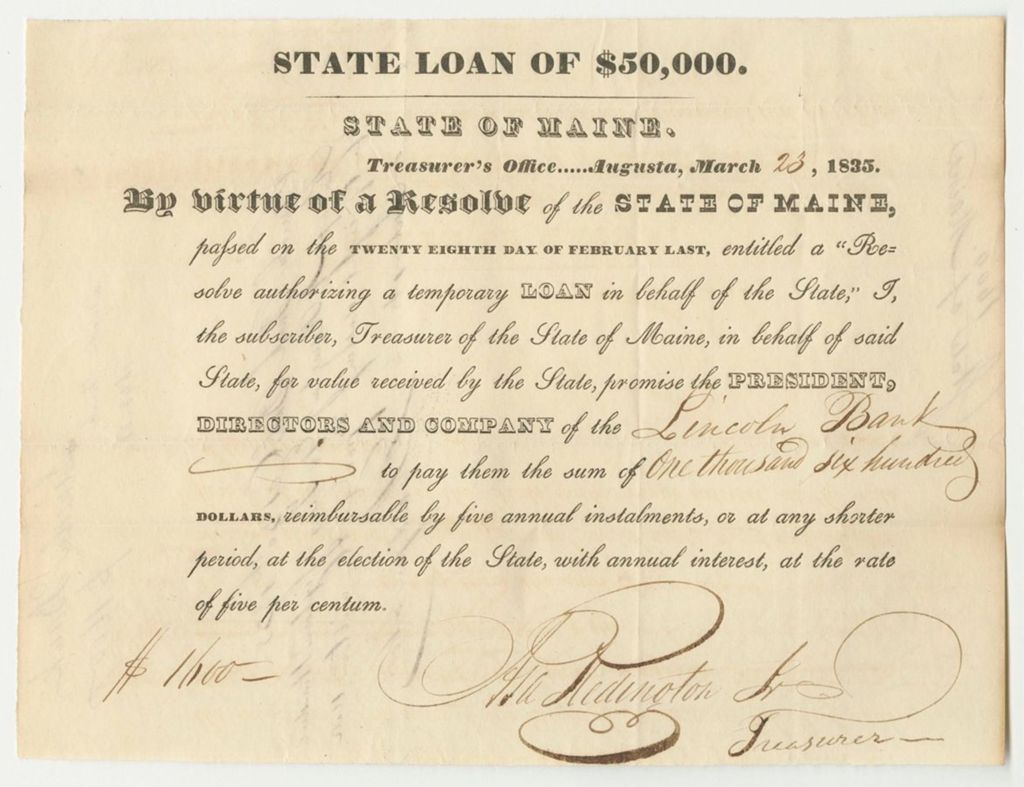 STATE LOAN OF $50,000.
STATE OF MAINE.
Treasurer's Office.....Augusta, March 23, 1835.
By virtue of a Resolve of the STATE OF MAINE,
paſsed on the TWENTY EIGHTH DAY OF FEBRUARY LAST, entitled a "Re=
solve authorizing a temporary LOAN in behalf of the State," I,
the subscriber, Treasurer of the State of Maine, in behalf of said
State, for value received by the State, promise the PRESIDENT,
DIRECTORS AND COMPANY of the Lincoln Bank
to pay them the sum of One thousand six hundred
DOLLARS, reimbursable by five annual instalments, or at any shorter
period, at the election of the State, with annual interest, at the rate
of five per centum.
$ 1600—
Asa Redington Jr
Treasurer—